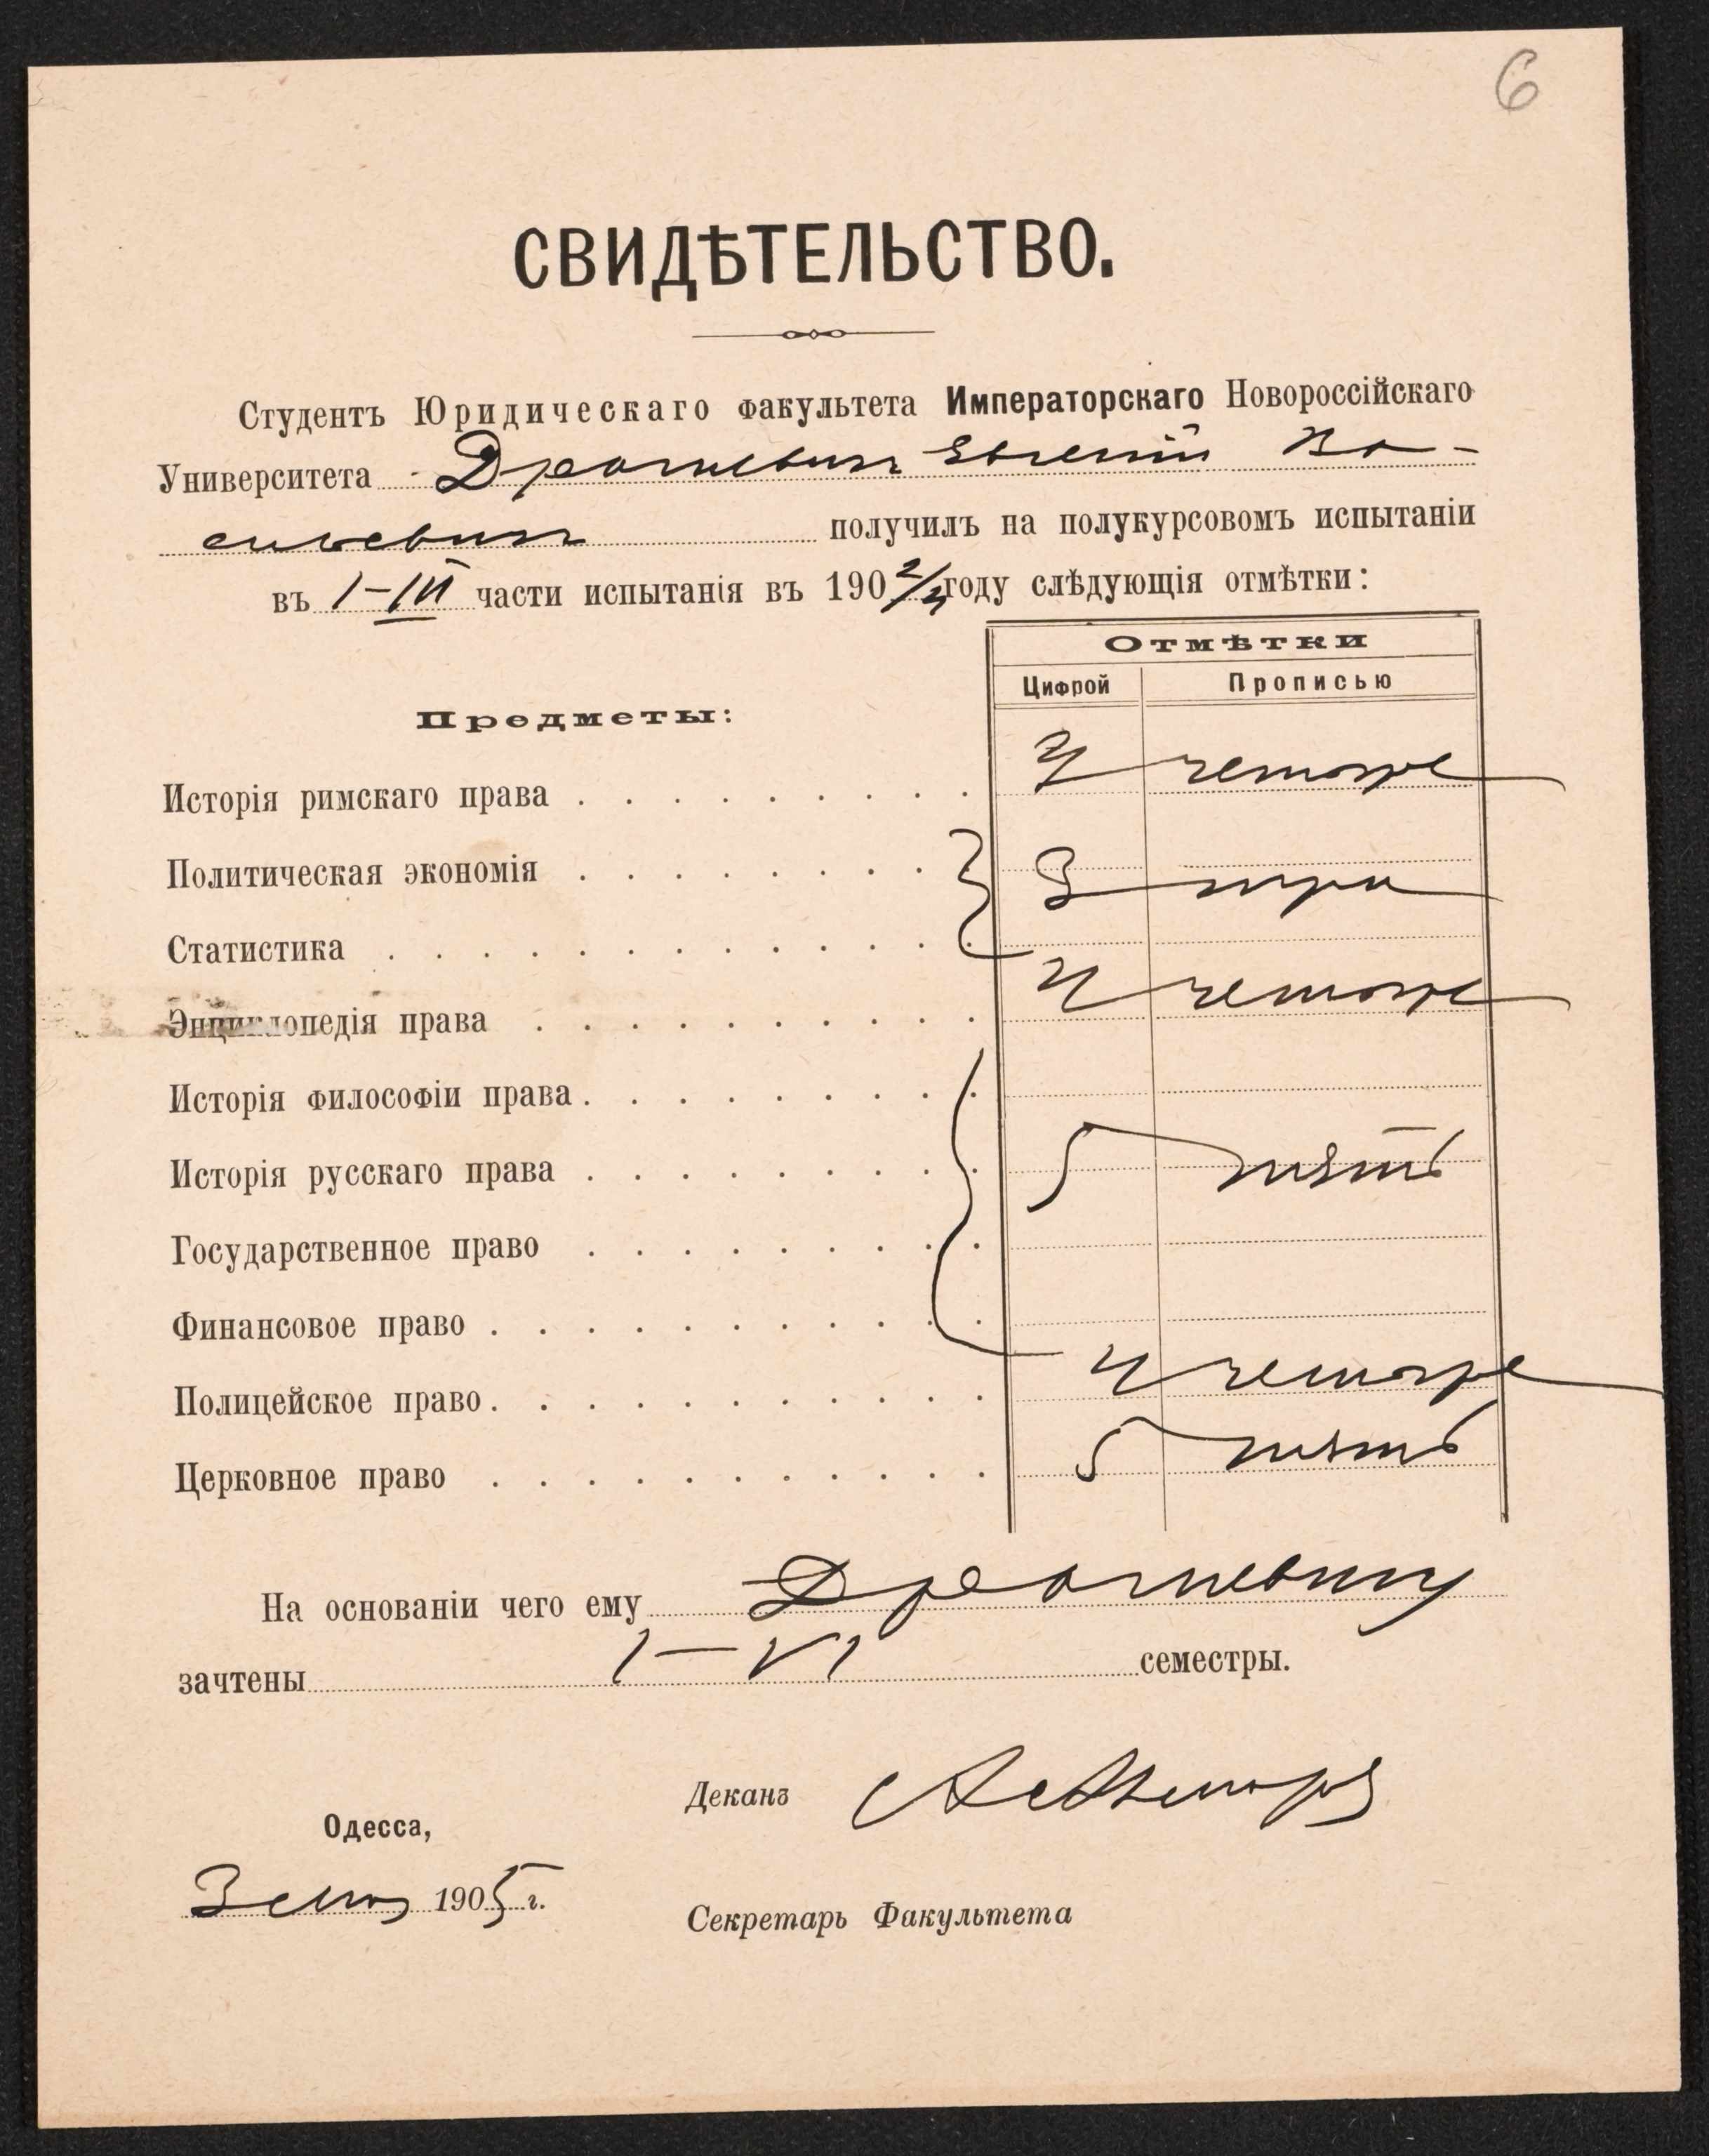 6
СВИДѢТЕЛЬСТВО.
Студентъ Юридическаго факультета Императорскаго Новороссійскаго
Университета Драгневичъ Евгеній Ва-
сильевичъ получилъ на полукурсовомъ испытаніи
въ I–III части испытанія въ 190 2/3 году слѣдующія отмѣтки:
Отмѣтки
Цифрой Прописью
Предметы:
Исторія римскаго права 4 четыре
Политическая экономія
3 три
Статистика
Энциклопедія права 4 четыре
Исторія философіи права
Исторія русскаго права 5 пять
Государственное право
Финансовое право
Полицейское право 4 четыре
Церковное право 5 пять
На основаніи чего ему Драгневичу
зачтены I–VI семестры.
Деканъ
Одесса,
3 1905 г.
Секретарь Факультета